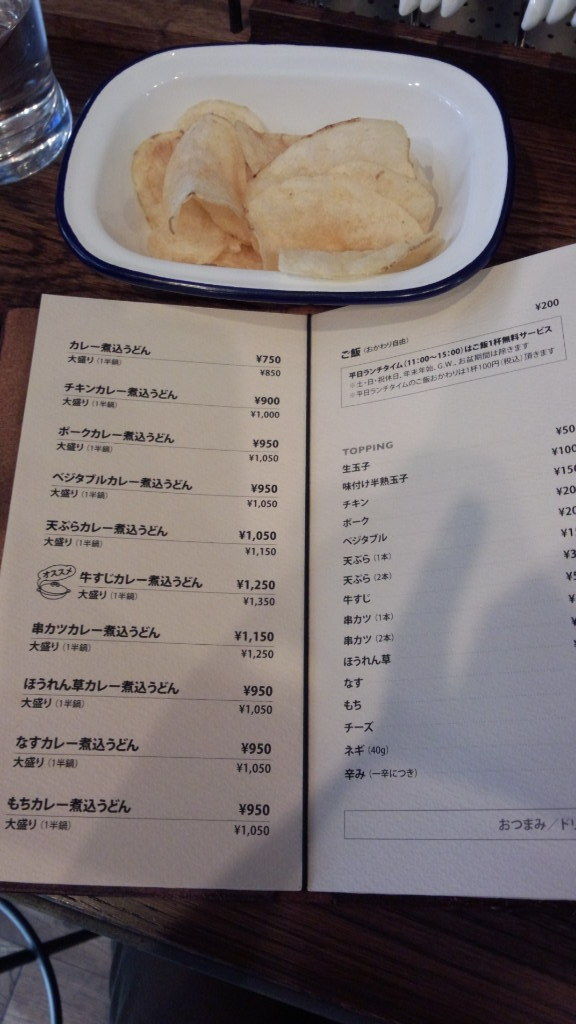 カレー煮込うどん ¥750
大盛り(1半鍋) ¥850
チキンカレー煮込うどん ¥900
大盛り(1半鍋) ¥1,000
ポークカレー煮込うどん ¥950
大盛り(1半鍋) ¥1,050
ベジタブルカレー煮込うどん ¥950
大盛り(1半鍋) ¥1,050
天ぷらカレー煮込うどん ¥1,050
大盛り(1半鍋) ¥1,150
オススメ 牛すじカレー煮込うどん ¥1,250
大盛り(1半鍋) ¥1,350
串カツカレー煮込うどん ¥1,150
大盛り(1半鍋) ¥1,250
ほうれん草カレー煮込うどん ¥950
大盛り(1半鍋) ¥1,050
なすカレー煮込うどん ¥950
大盛り(1半鍋) ¥1,050
もちカレー煮込うどん ¥950
大盛り(1半鍋) ¥1,050
ご飯(おかわり自由) ¥200
平日ランチタイム(11:00〜15:00)はご飯1杯無料サービス
※土・日・祝休日、年末年始、G.W.、お盆期間は除きます
※平日ランチタイムのご飯おかわりは1杯100円(税込)頂きます
TOPPING
生玉子 ¥50
味付け半熟玉子 ¥100
チキン ¥150
ポーク
ベジタブル
天ぷら(1本)
天ぷら(2本)
牛すじ
串カツ(1本)
串カツ(2本)
ほうれん草
なす
もち
チーズ
ネギ(40g)
辛み(一辛につき)
おつまみ/ドリ